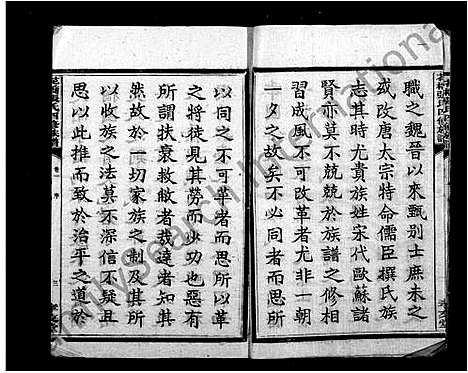 職之魏晉以來甄別士庶未之
或改唐太宗特命儒臣撰氏族
志其時尤貴族姓宋代歐蘇諸
賢亦莫不兢兢於族譜之修相
習成風不可改革者尤非一朝
一夕之故矣不必同者而思所
以同之不可革者而思所以革
之將徒見其勞而少功也惡有
所謂扶衰救敝者哉達者知其
然故於一切家族之制及其所
以收族之法莫不深信不疑且
思以此推而致於治平之道於
FamilySearch International